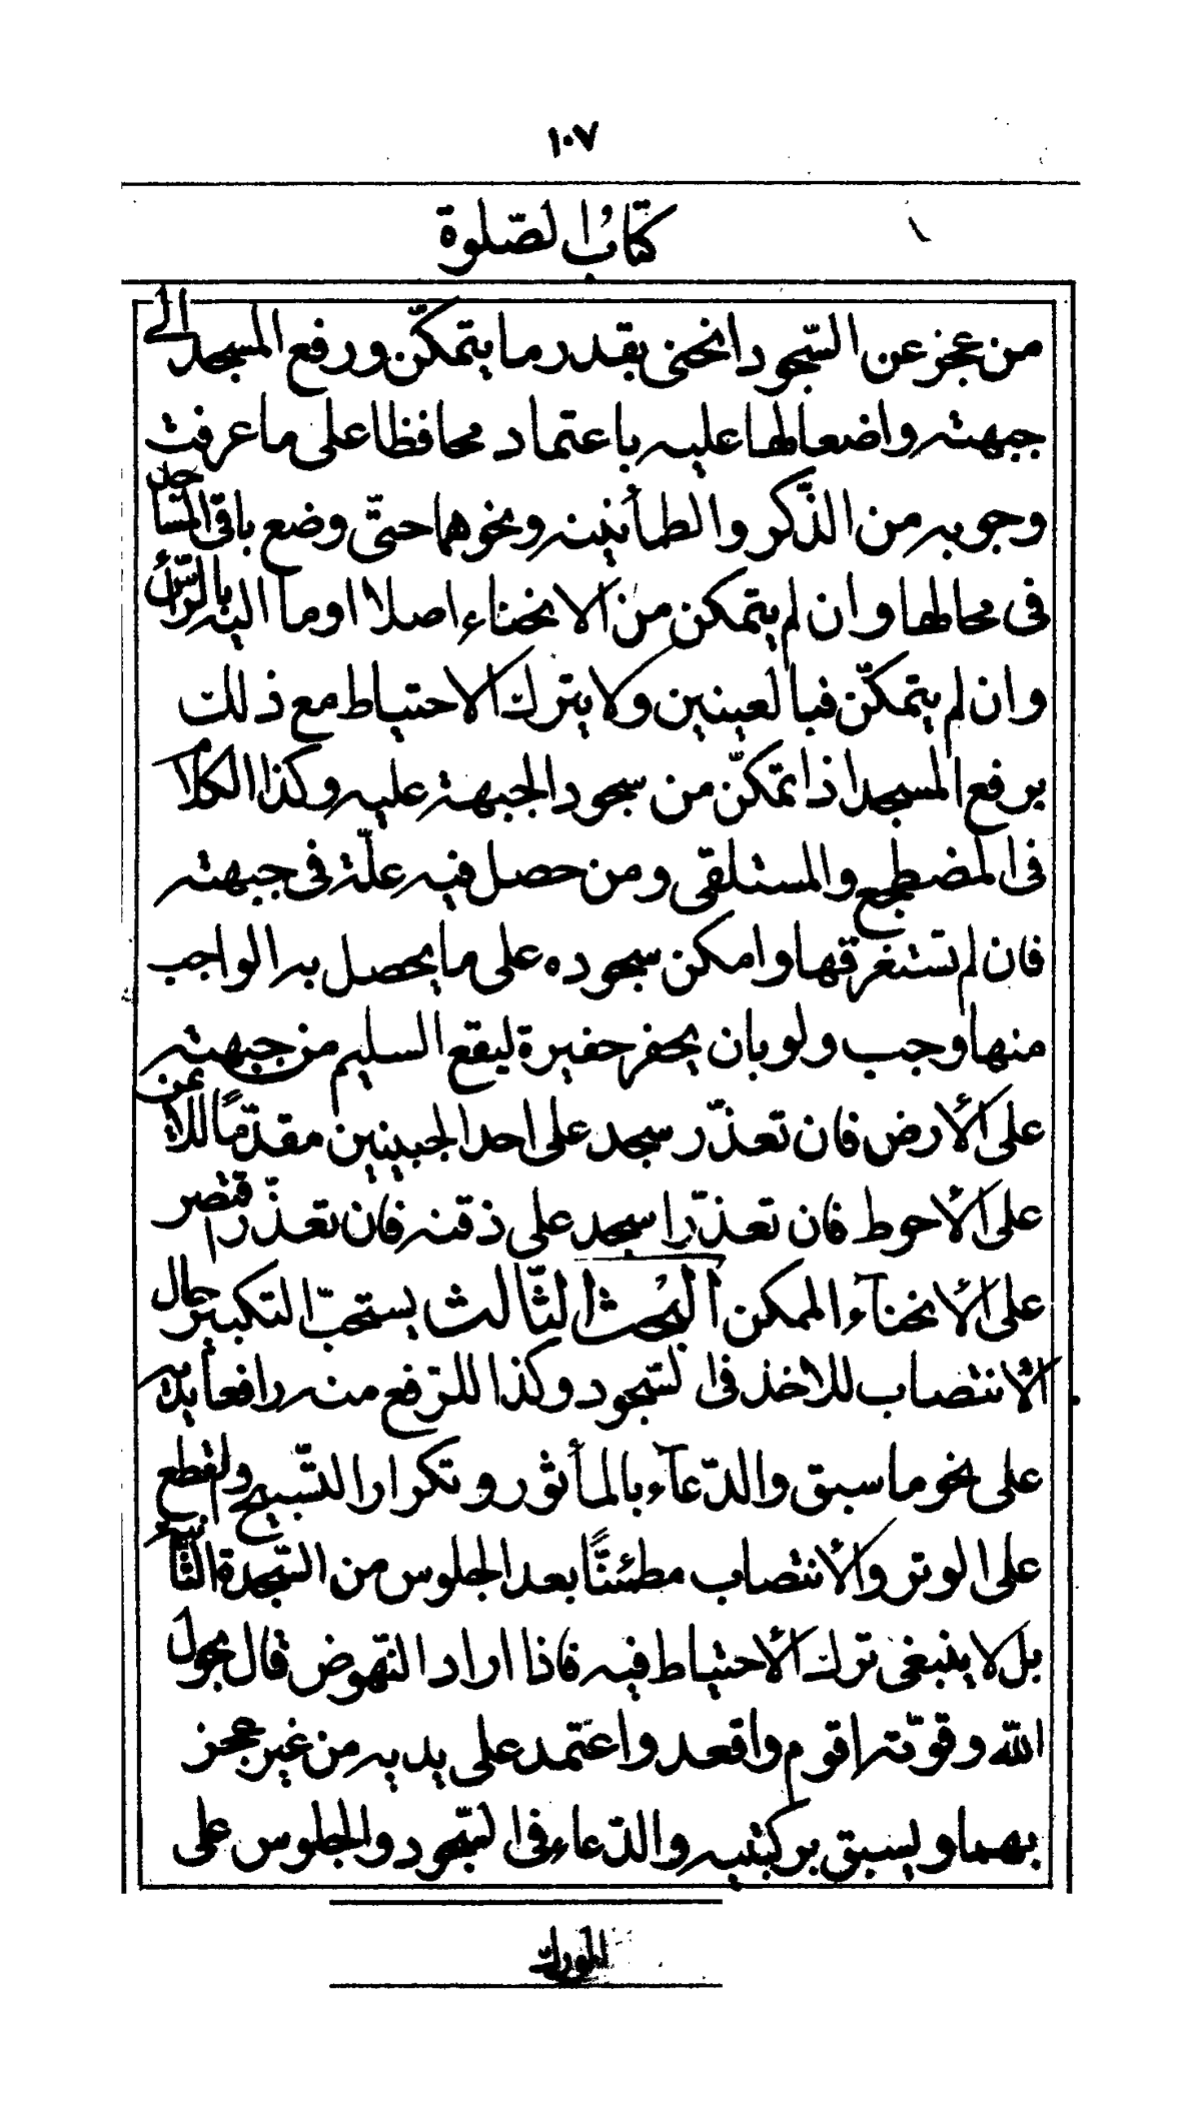 ١٠٧
كتابُ الصّلوة
من عجز عن السّجود انحنى بقدر ما يتمكّن ورفع المسجد الى
جبهته واضعا لها عليه باعتماد محافظا على ما عرفت
وجوبه من الذّكر والطمأنينه ونحوهما حتّى وضع باقى المساجد
فى محالها وان لم يتمكن من الانحناء اصلا اومأ اليه بالرّأس
وان لم يتمكّن فبالعينين ولا يترك الاحتياط مع ذلك
برفع المسجد اذا تمكّن من سجود الجبهة عليه وكذا الكلام
فى المضطجع والمستلقى ومن حصل فيه علّة فى جبهته
فان لم تستغرقها وامكن سجوده على ما يحصل به الواجب
منها وجب ولو بان يحفر حفيرة ليقع السليم من جبهته
على الأرض فان تعذّر سجد على احد الجبينين مقدّمًا للأيمن
على الأحوط فان تعذّر سجد على ذقنه فان تعذّر اقتصر
على الأنحنآء الممكن البحثُ الثّالث يستحبّ التكبير حال
الأنتصاب للاخذ فى السّجود وكذا للرّفع منه رافعاً يديه
على نحو ما سبق والدّعآء بالمأثور وتكرار التّسبيح والقطع
على الوتر والأنتصاب مطمئنًّا بعد الجلوس من السّجدة الثّانية
بل لا ينبغى ترك الأحتياط فيه فاذا اراد النّهوض قال بحول
اللّه وقوّته اقوم واقعد واعتمد على يديه من غير عجز
بهما ويسبق بركبتيه والدّعاء فى السّجود والجلوس على